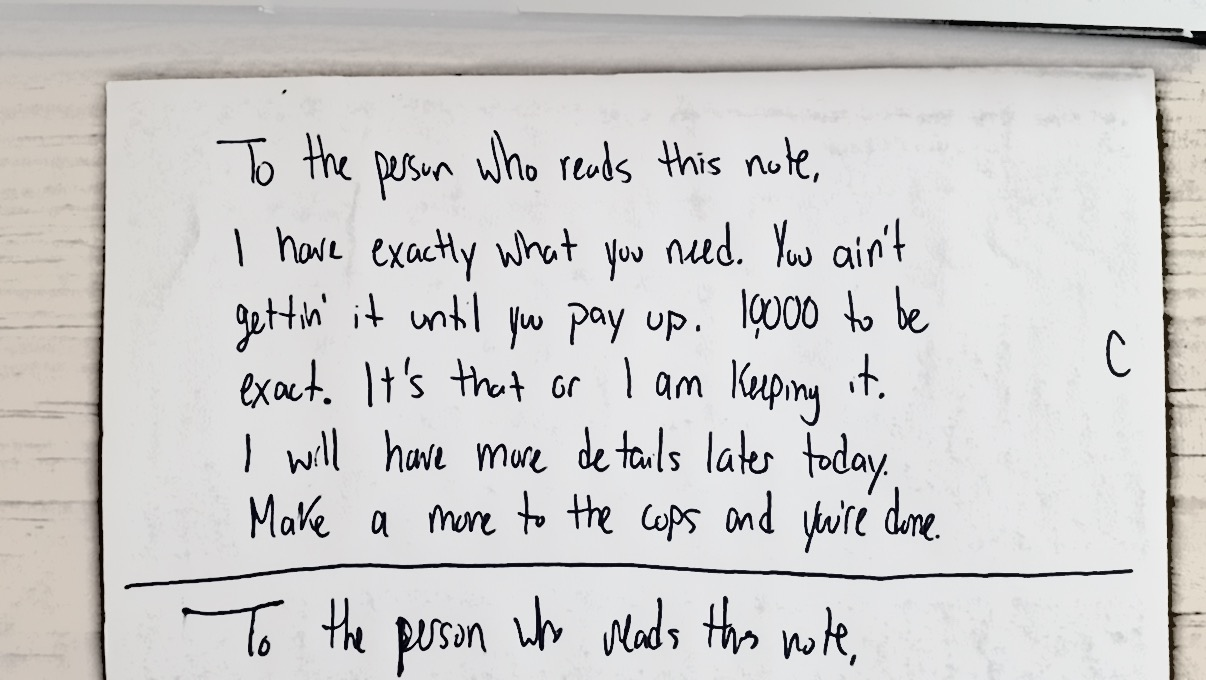 To the person who reads this note,
I have exactly what you need. You ain't
gettin' it until you pay up. 10,000 to be
exact. It's that or I am keeping it.
C
I will have more details later today.
Make a move to the cops and you're done.
To the person who reads this note,